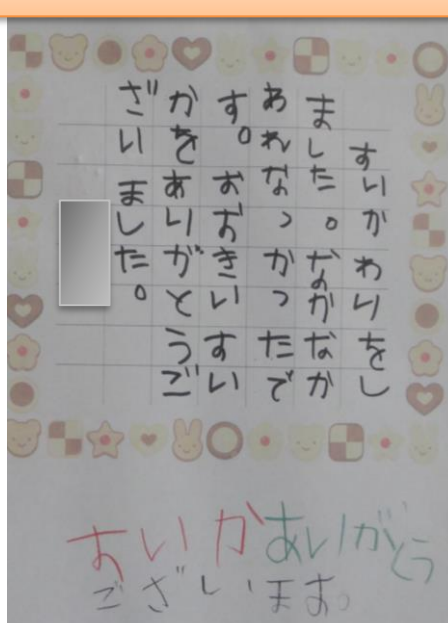 すいかわりをし
ました。なかなか
われなっかったで
す。おおきいすい
かをありがとうご
ざいました。
すいかありがとう
ございます。